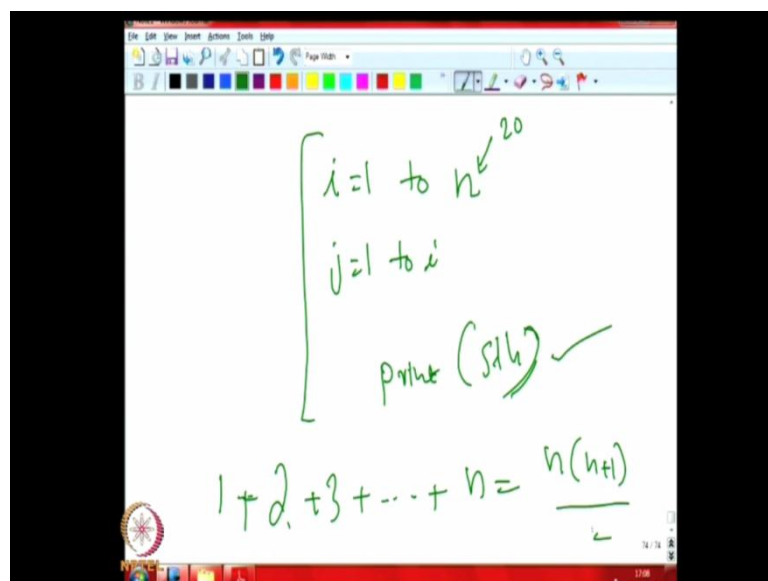 File Edit View Insert Actions Tools Help
Page Width
B I
20
i=1 to n
j=1 to i
print (sth)
1+2+3+----+ n= n(n+1)
2
74 / 74
NPTEL
17:08